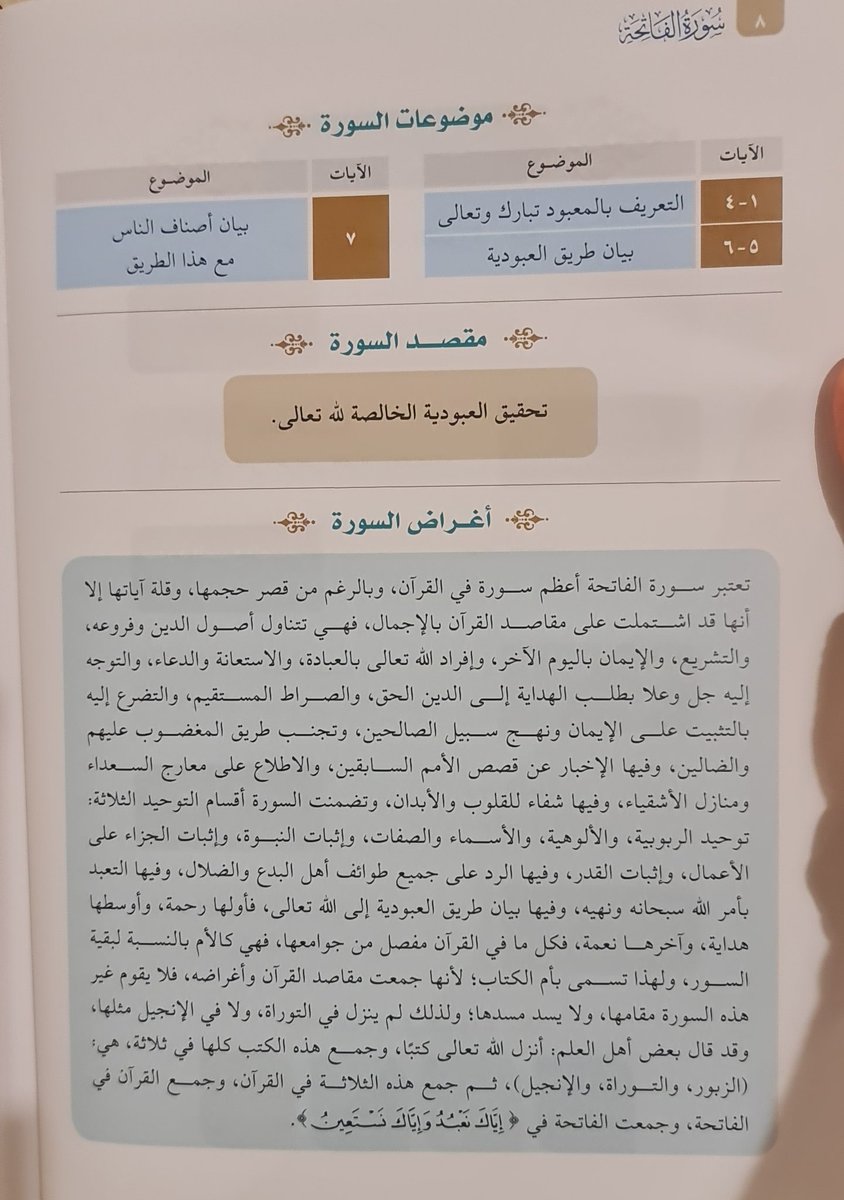 ٨
سُورَةُ الفَاتِحَة
موضوعات السورة
الآيات
الموضـوع
١-٤
التعريف بالمعبود تبارك وتعالى
٥-٦
بيان طريق العبودية
الآيات
الموضـوع
٧
بيان أصناف الناس
مع هذا الطريق
مقصـد السورة
تحقيق العبودية الخالصة لله تعالى.
أغـراض السورة
تعتبر سـورة الفاتحة أعظم سـورة في القرآن، وبالرغم من قصر حجمها، وقلة آياتها إلا
أنها قد اشـتملت على مقاصـد القرآن بالإجمال، فهـي تتناول أصـول الدين وفروعه،
والتشريع، والإيمان باليوم الآخر، وإفراد الله تعالى بالعبادة، والاستعانة والدعاء، والتوجه
إليه جل وعلا بطلـب الهداية إلـى الدين الحق، والصـراط المسـتقيم، والتضرع إليه
بالتثبيت علـى الإيمان ونهـج سـبيل الصالحين، وتجنـب طريق المغضـوب عليهم
والضالين، وفيها الإخبار عن قصص الأمم السـابقين، والاطلاع على معارج السـعداء
ومنازل الأشقياء، وفيها شفاء للقلوب والأبدان، وتضمنت السورة أقسام التوحيد الثلاثة:
توحيد الربوبية، والألوهية، والأسـماء والصفات، وإثبات النبـوة، وإثبات الجزاء على
الأعمال، وإثبات القدر، وفيها الرد على جميع طوائف أهل البدع والضلال، وفيها التعبد
بأمر الله سبحانه ونهيه، وفيها بيان طريق العبودية إلى الله تعالى، فأولها رحمة، وأوسطها
هداية، وآخرهـا نعمة، فكل ما في القرآن مفصل من جوامعها، فهي كالأم بالنسـبة لبقية
السـور، ولهذا تسـمى بأم الكتاب؛ لأنها جمعت مقاصد القرآن وأغراضه، فلا يقوم غير
هذه السورة مقامها، ولا يسد مسدها؛ ولذلك لم ينزل في التوراة، ولا في الإنجيل مثلها،
وقد قال بعض أهل العلم: أنزل الله تعالى كتبًا، وجمـع هذه الكتب كلها في ثلاثة، هي:
(الزبور، والتـوراة، والإنجيل)، ثـم جمع هذه الثلاثـة في القرآن، وجمـع القرآن في
الفاتحة، وجمعت الفاتحة في ﴿ إِيَّاكَ نَعْبُدُ وَإِيَّاكَ نَسْتَعِينُ ﴾.